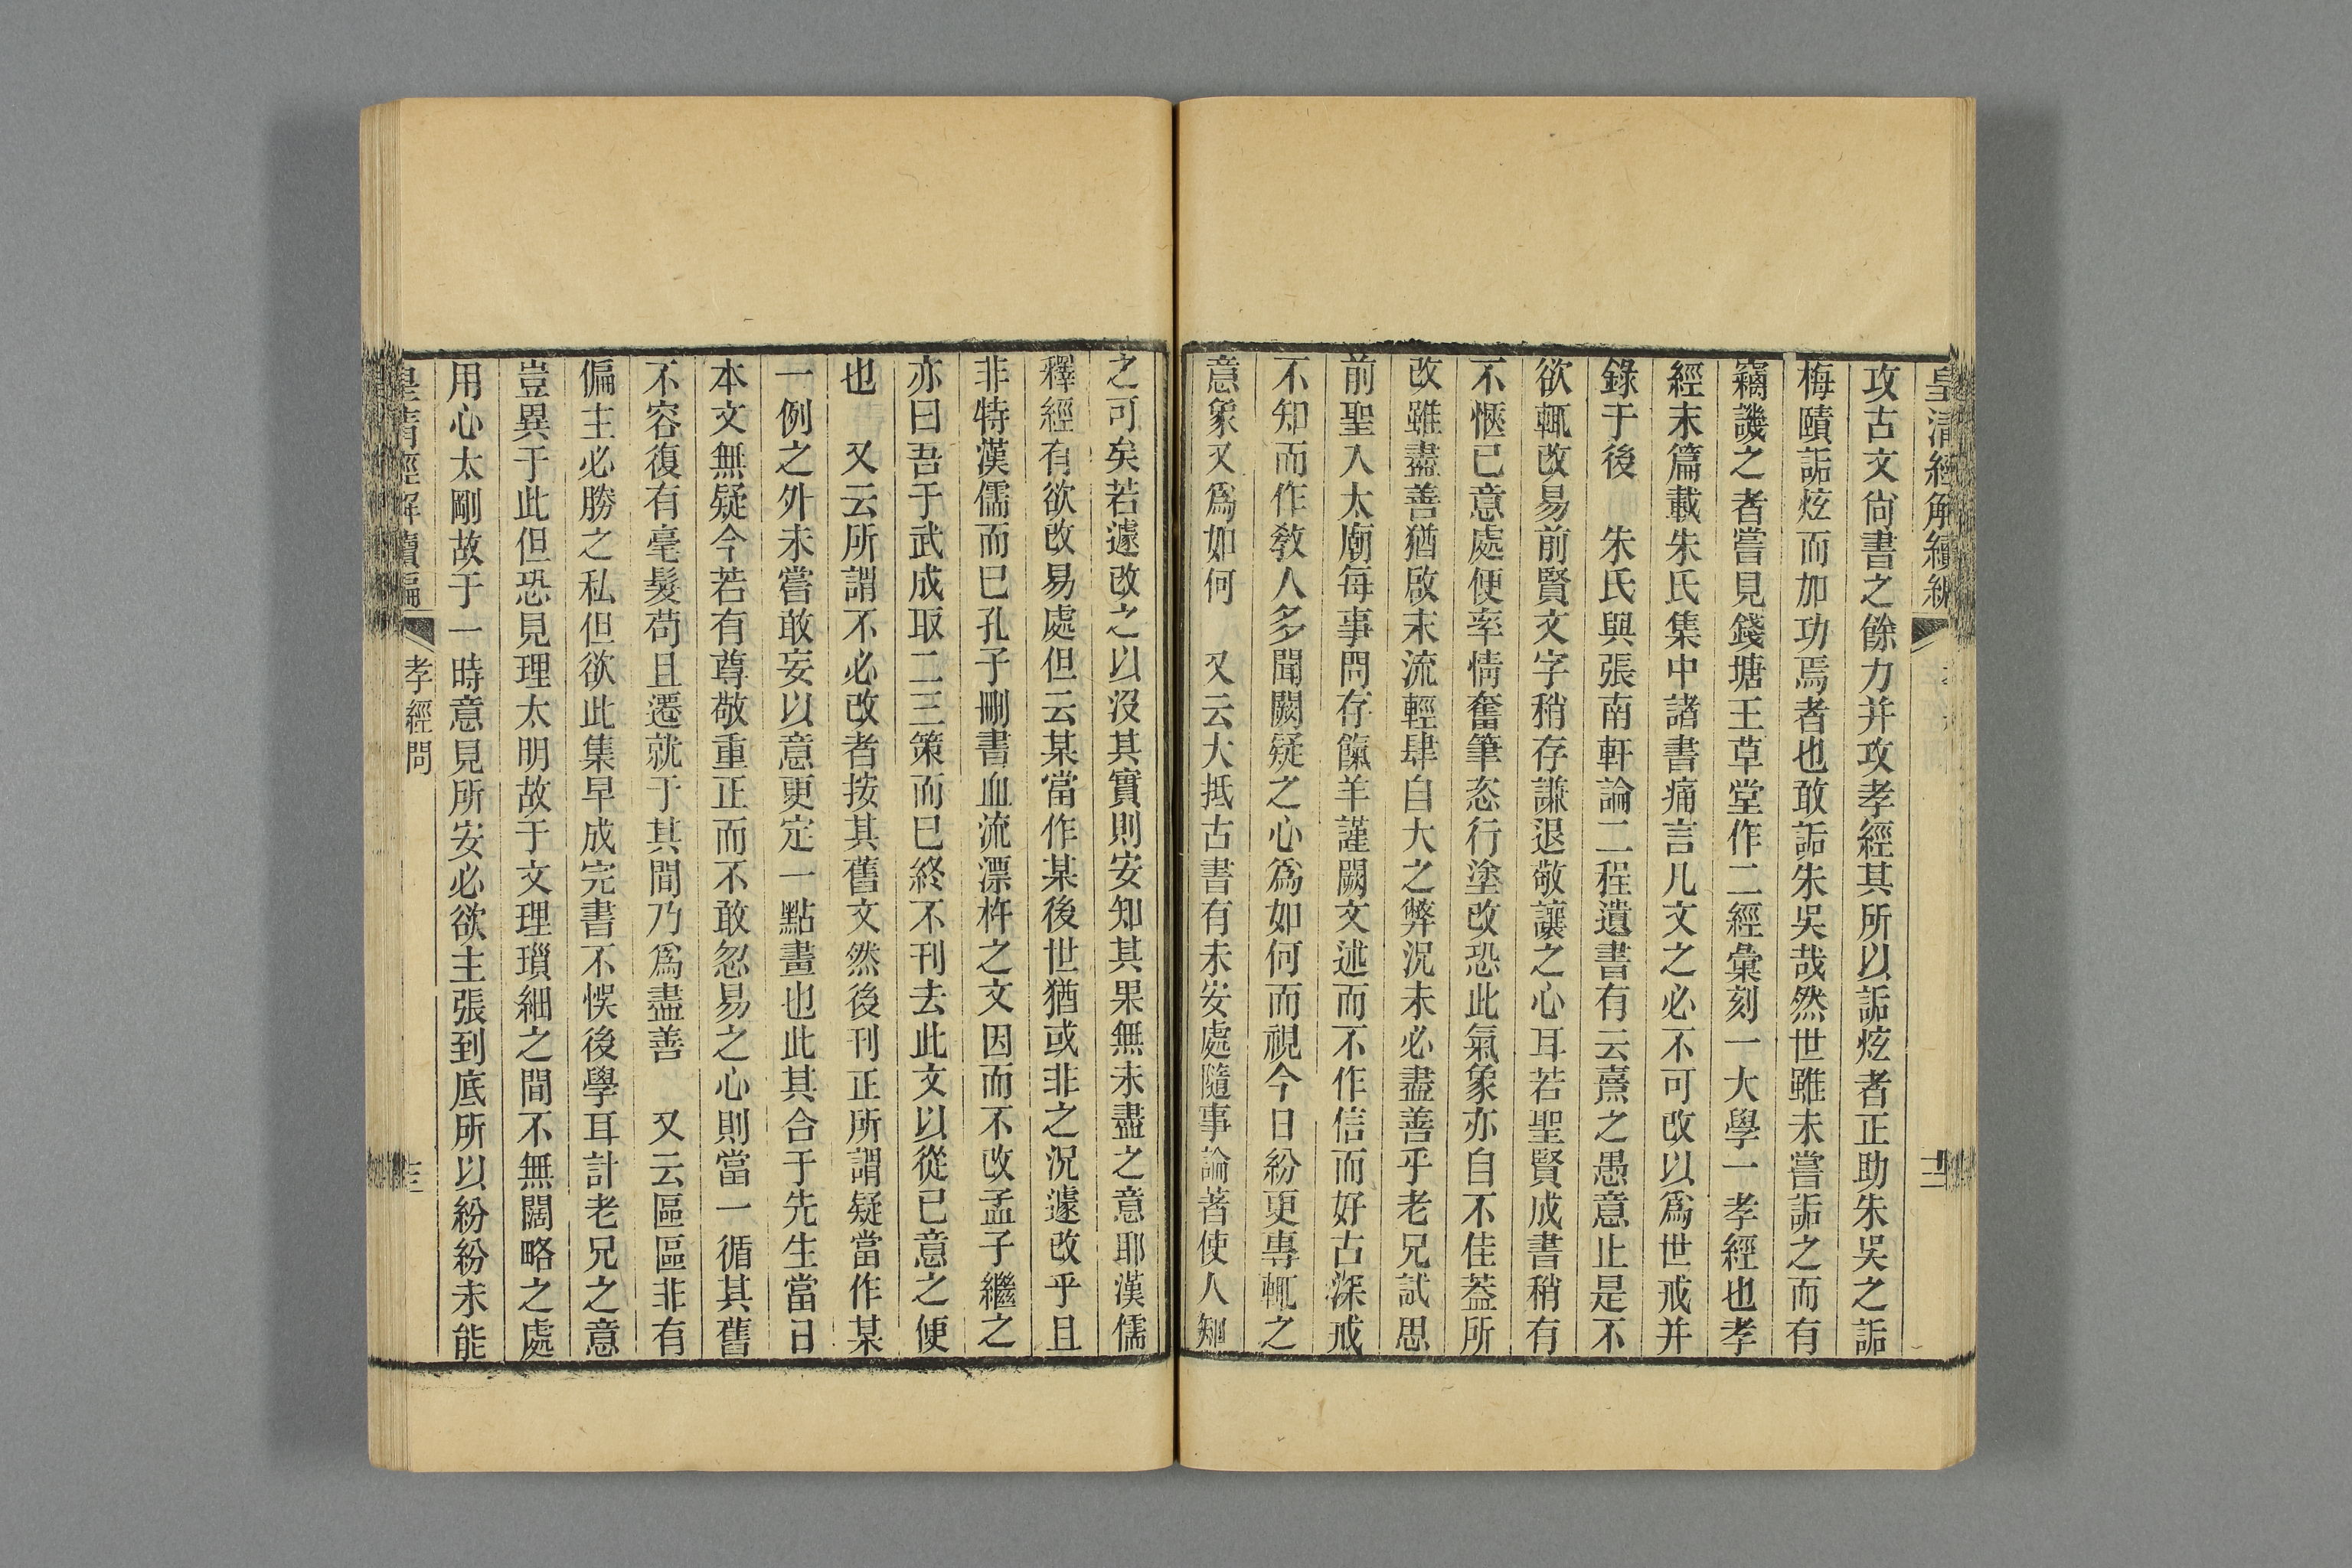 皇清經解續編
攻古文尙書之餘力并攻孝經其所以詬炫者正助朱吳之詬
梅賾詬炫而加功焉者也敢詬朱吳哉然世雖未嘗詬之而有
竊譏之者嘗見錢塘王草堂作二經彙刻一大學一孝經也孝
經末篇載朱氏集中諸書痛言凡文之必不可改以爲世戒并
錄于後　朱氏與張南軒論二程遺書有云熹之愚意止是不
欲輒改易前賢文字稍存謙退敬讓之心耳若聖賢成書稍有
不愜已意處便率情奮筆恣行塗改恐此氣象亦自不佳葢所
改雖盡善猶啟末流輕肆自大之弊況未必盡善乎老兄試思
前聖入太廟每事問存餼羊謹闕文述而不作信而好古深戒
不知而作教人多聞闕疑之心爲如何而視今日紛更專輒之
意象又爲如何　又云大抵古書有未安處隨事論著使人知
之可矣若遽改之以沒其實則安知其果無未盡之意耶漢儒
釋經有欲改易處但云某當作某後世猶或非之況遽改乎且
非特漢儒而已孔子刪書血流漂杵之文因而不改孟子繼之
亦曰吾于武成取二三策而已終不刊去此文以從已意之便
也　又云所謂不必改者按其舊文然後刊正所謂疑當作某
一例之外未嘗敢妄以意更定一點畫也此其合于先生當日
本文無疑今若有尊敬重正而不敢忽易之心則當一循其舊
不容復有毫髮苟且遷就于其間乃爲盡善　又云區區非有
偏主必勝之私但欲此集早成完書不悞後學耳計老兄之意
豈異于此但恐見理太明故于文理瑣細之間不無闊略之處
用心太剛故于一時意見所安必欲主張到底所以紛紛未能
皇淸經解續編　孝經問　十三